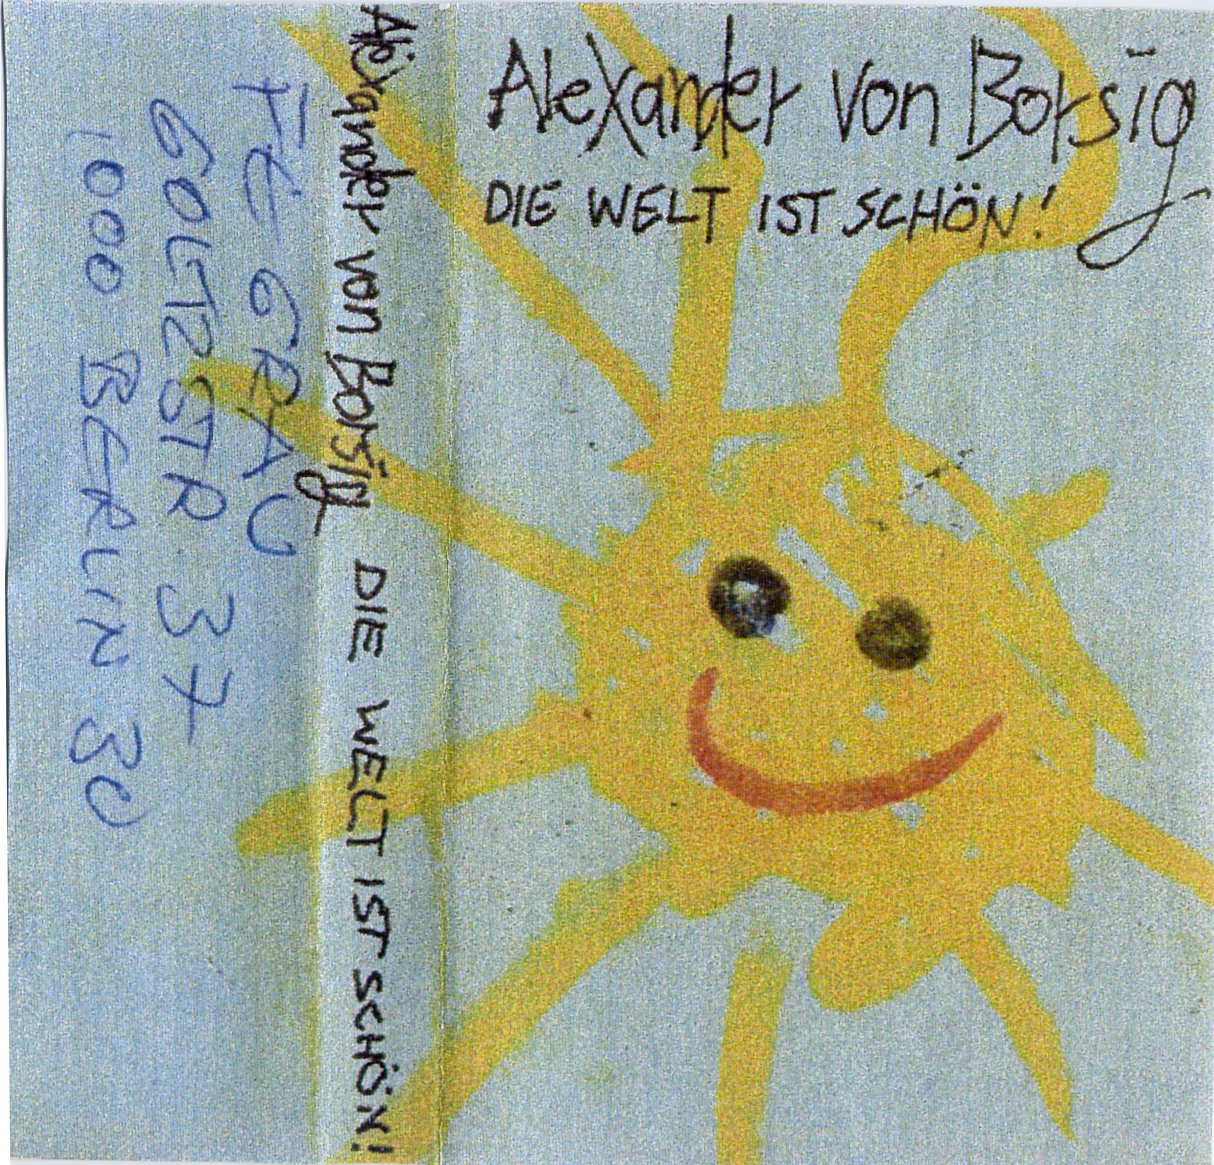 Alexander von Borsig
DIE WELT IST SCHÖN!
Alexander von Borsig DIE WELT IST SCHÖN!
FE GRAU
GOLTZSTR. 37
1000 BERLIN 30